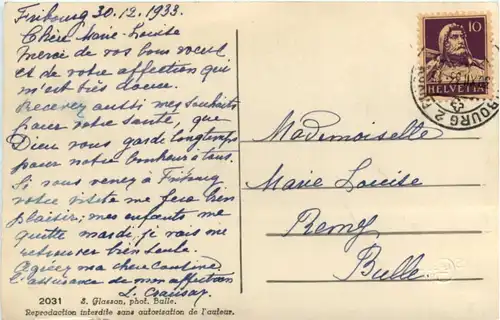 Fribourg 30.12.1933.
Chère Marie-Louise
Merci de vos bons voeux
et de votre affection qui
m'est très douce.
Recevez aussi mes souhaits
pour votre santé, que
Dieu vous garde longtemps
pour notre bonheur à tous.
Si vous venez à Fribourg
votre visite me fera bien
plaisir; mes enfants me
quitte mardi, je vais me
retrouver bien seule.
Agréez ma chère cousine
l'assurance de mon affection
L.
2031 S. Glasson, phot. Bulle.
Reproduction interdite sans autorisation de l'auteur.
10
HELVETIA
BOURG 2
Mademoiselle
Marie Louise
Remy
Bulle